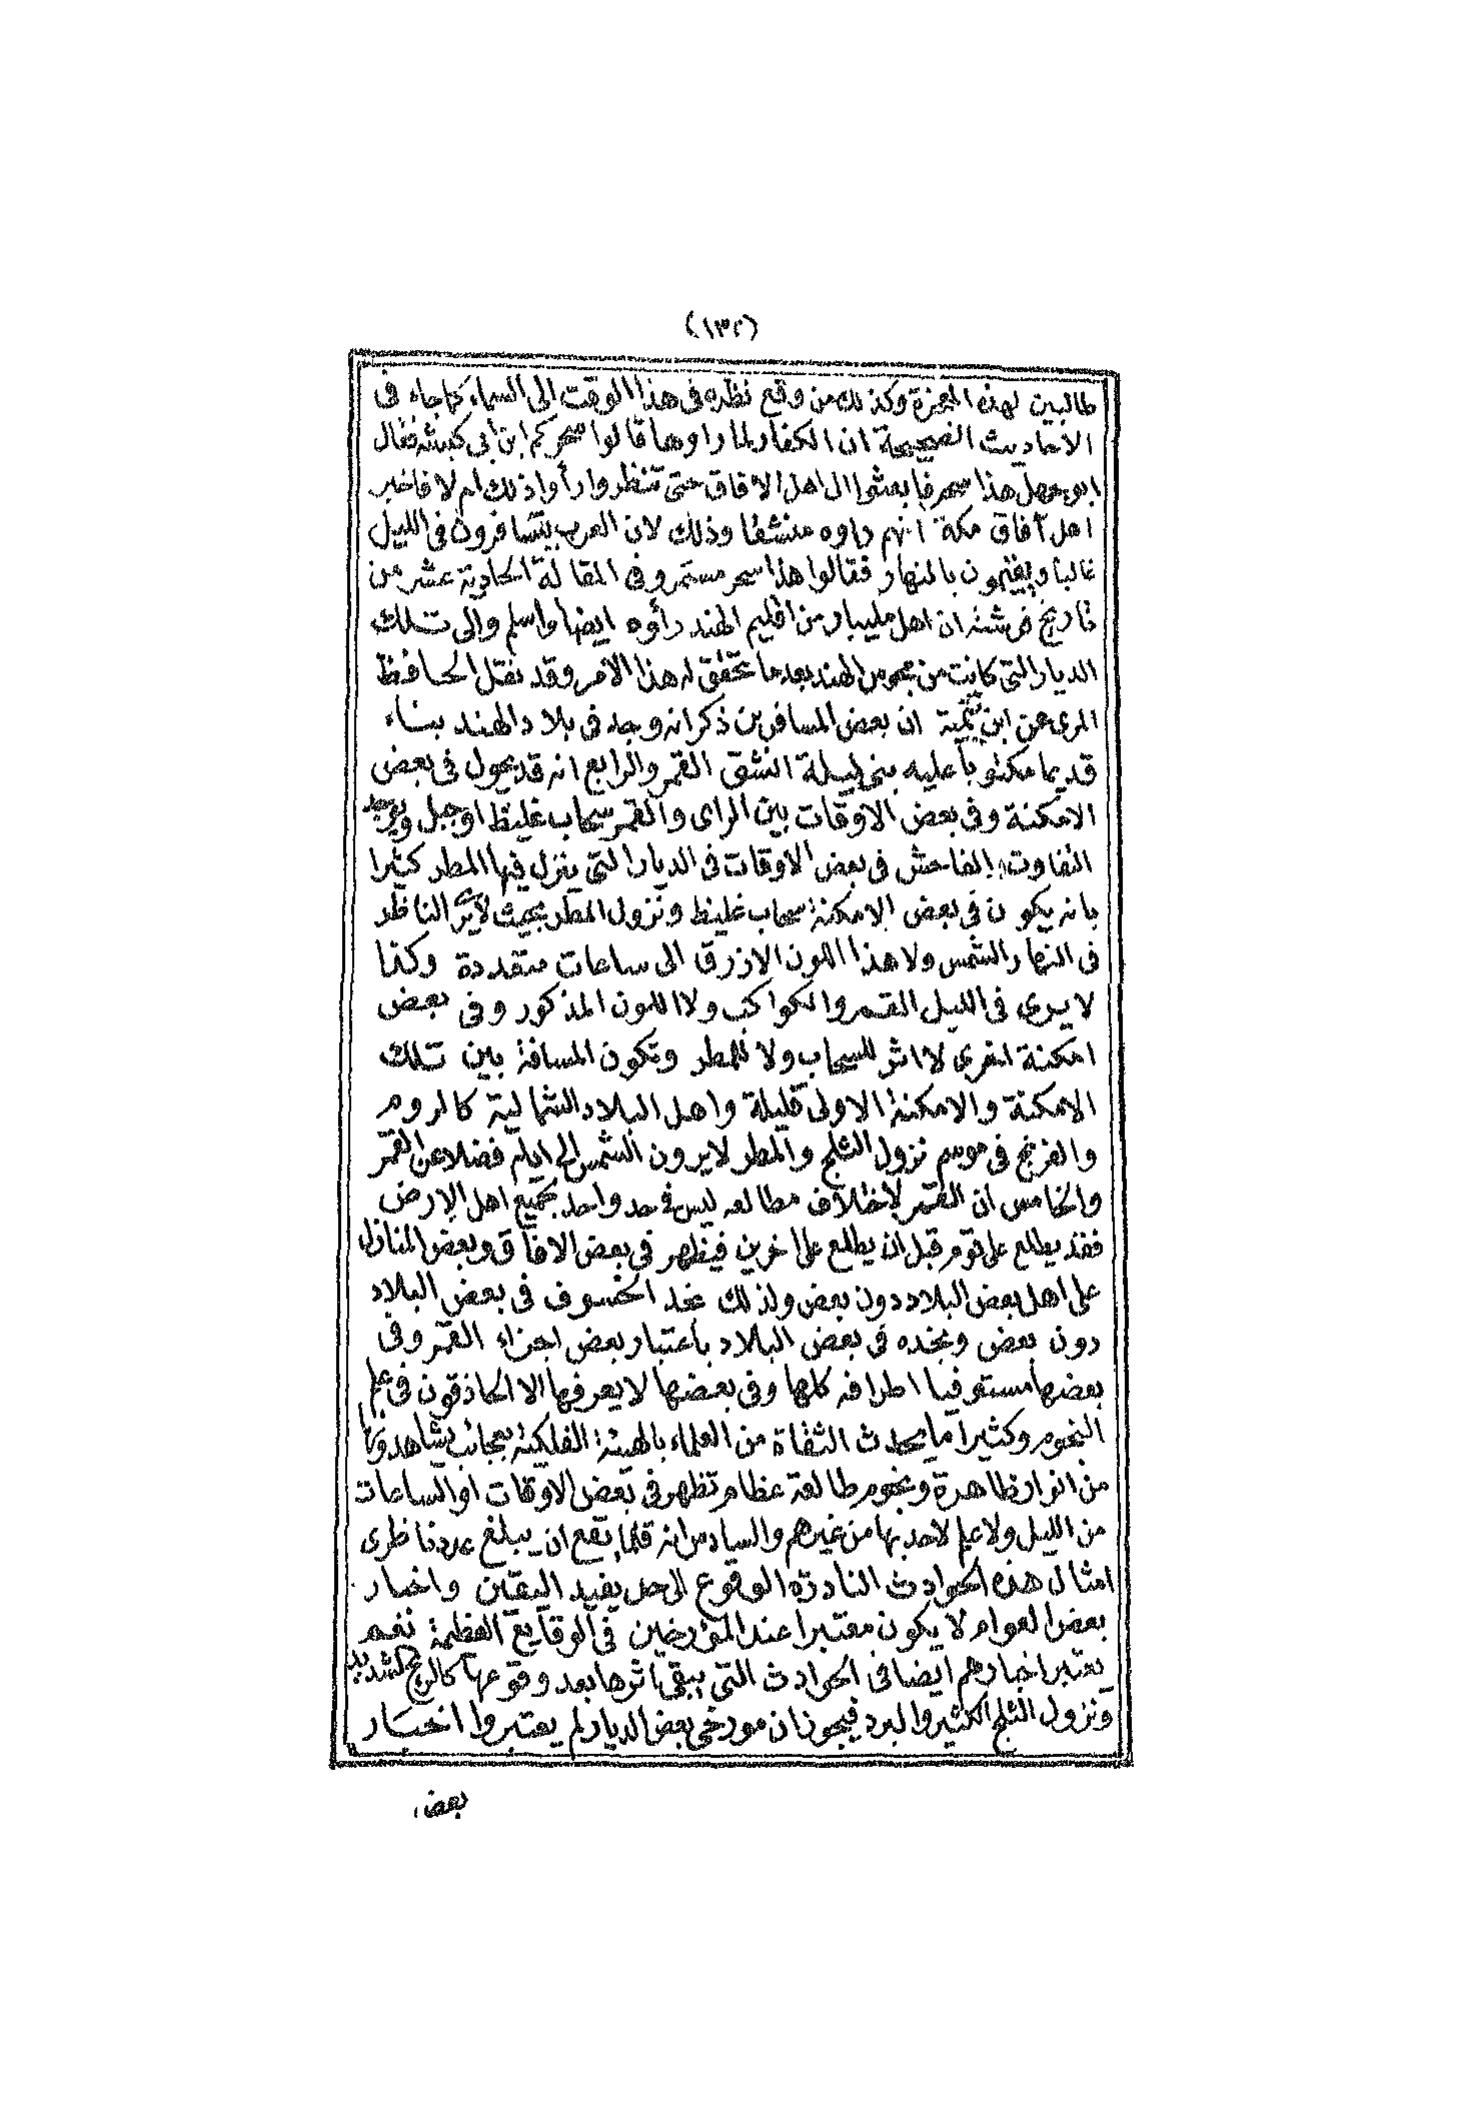 (١٣٢)
طالبين لهذه المعجزة وكذلك من وقع نظره فى هذا الوقت الى السماء كما جاء فى
الاحاديث الصحيحة ان الكفار لما راوها قالوا سحركم ابن ابى كبشه فقال
ابو جهل هذا سحر فابعثوا الى اهل الافاق حتى تنظروا رأوا ذلك ام لا فاخبر
اهل آفاق مكة انهم راوه منشقا وذلك لان العرب يتسافرون فى الليل
غالبا ويقيمون بالنهار فقالوا هذا سحر مستمر وفى المقالة الحادية عشر من
تاريخ فرشته ان اهل مليبار من اقليم الهند رأوه ايضا واسلم والى تلك
الديار التى كانت من مجوس الهند بعد ما تحقق له هذا الأمر وقد نقل الحافظ
المرى عن ابن تيمية ان بعض المسافرين ذكر انه وجد فى بلاد الهند بناء
قديما مكتوبا عليه بنى ليلة انشق القمر والرابع انه قد يحول فى بعض
الامكنة وفى بعض الاوقات بين الراى والقمر سحاب غليظ او جبل ويوجد
التفاوت الفاحش فى بعض الاوقات فى الديار التى ينزل فيها المطر كثيرا
بانه يكون فى بعض الامكنة سحاب غليظ ونزول المطر بحيث لا يرى الناظر
فى النهار الشمس ولا هذا اللون الازرق الى ساعات متعددة وكذا
لا يرى فى الليل القمر والكواكب ولا اللون المذكور وفى بعض
امكنة اخرى لا اثر للسحاب ولا للمطر وتكون المسافة بين تلك
الامكنة والامكنة الاولى قليلة واهل البلاد الشمالية كالروم
والفرنج فى موسم نزول الثلج والمطر لا يرون الشمس الى ايام فضلا عن القمر
والخامس ان القمر لاختلاف مطالعه ليس فى حد واحد لجميع اهل الارض
فقد يطلع على قوم قبل ان يطلع على اخرين فيظهر فى بعض الافاق وبعض المنازل
على اهل بعض البلاد دون بعض ولذلك نجد الخسوف فى بعض البلاد
دون بعض ونجده فى بعض البلاد باعتبار بعض اجزاء القمر وفى
بعضها مستوفيا اطرافه كلها وفى بعضها لا يعرفها الا الحاذقون فى علم
النجوم وكثيرا ما يحدث الثقاة من العلماء بالهيئة الفلكية بعجائب يشاهدونها
من انوار ظاهرة ونجوم طالعة عظام تظهر فى بعض الاوقات او الساعات
من الليل ولا علم لاحد بها من غيرهم والسادس انه قلما يقع ان يبلغ عدد ناظرى
امثال هذه الحوادث النادرة الوقوع الى حد يفيد اليقين واخبار
بعض العوام لا يكون معتبرا عند المؤرخين فى الوقايع العظيمة نعم
يعتبر اخبارهم ايضا فى الحوادث التى يبقى اثرها بعد وقوعها كالريح الشديد
ونزول الثلج الكثير والبرد فيجوز ان مورخى بعض الديار لم يعتبروا اخبار
بعض